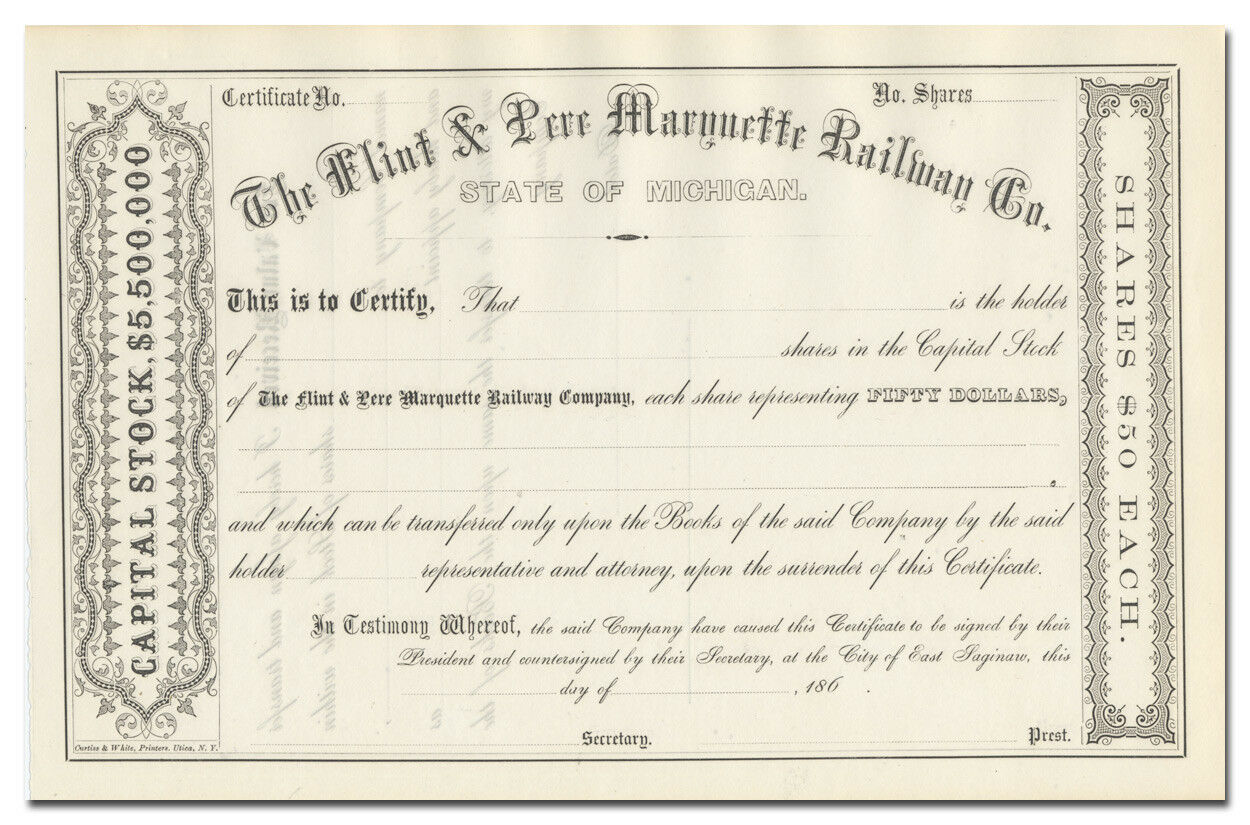 Certificate No.
No. Shares
The Flint & Pere Marquette Railway Co.
STATE OF MICHIGAN.
CAPITAL STOCK, $5,500,000
SHARES $50 EACH.
This is to Certify, That is the holder
of shares in the Capital Stock
of The Flint & Pere Marquette Railway Company, each share representing FIFTY DOLLARS,
and which can be transferred only upon the Books of the said Company by the said
holder representative and attorney, upon the surrender of this Certificate.
In Testimony Whereof, the said Company have caused this Certificate to be signed by their
President and countersigned by their Secretary, at the City of East Saginaw, this
day of , 186 .
Secretary.
Prest.
Curtiss & White, Printers, Utica, N. Y.